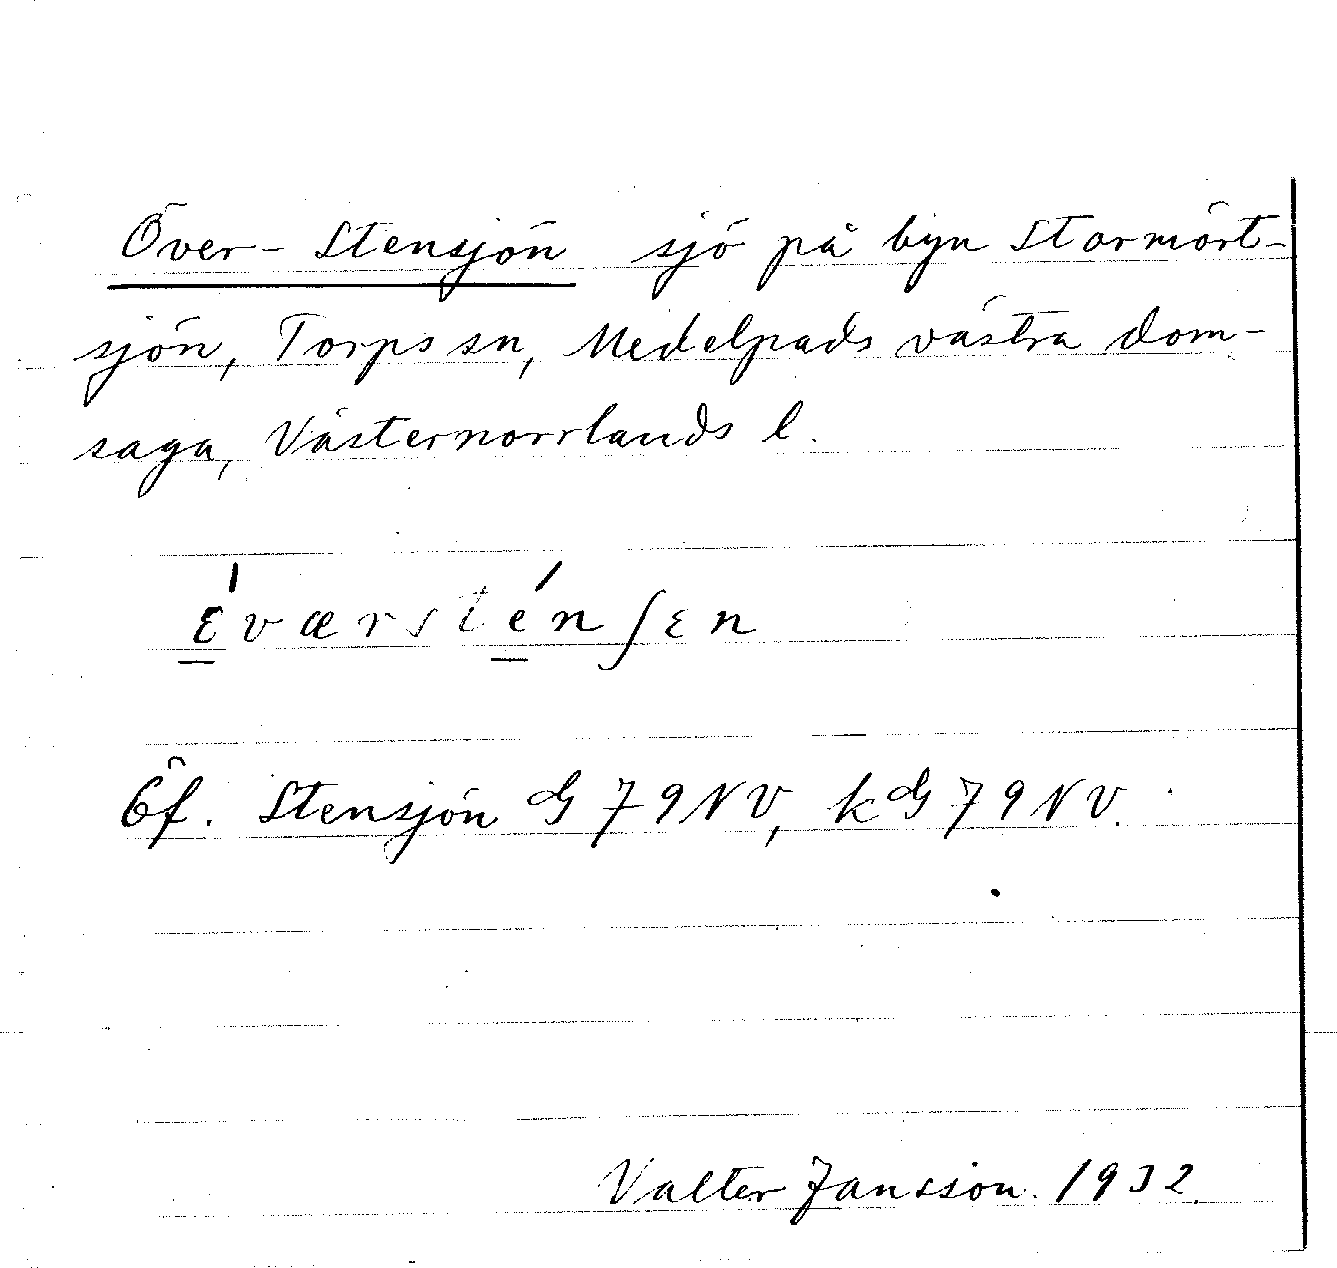 Över-Stensjön sjö på byn Stormört-
sjön, Torps sn, Medelpads västra dom-
saga, Västernorrlands l.
ɛ́værsténʃɛn
Öf. Stensjön G 79 NV, kG 79 NV.
Valter Jansson. 1932.